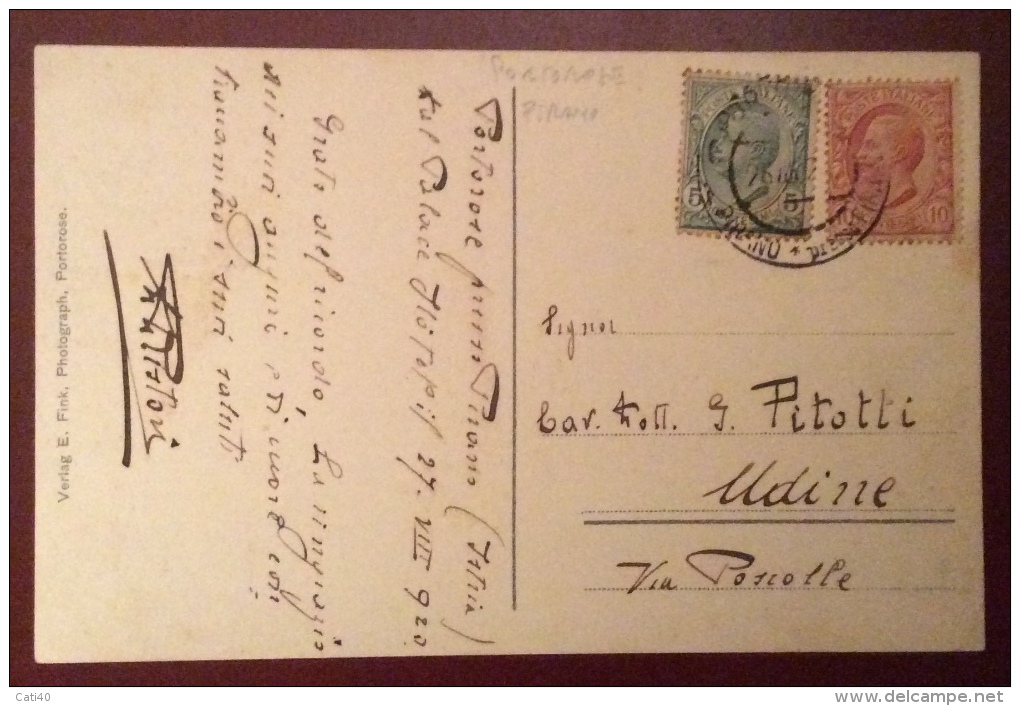 PORTOROSE
PIRANO
Portorose presso Pirano (Istria)
Palace Hôtel, il 27. VIII 920
Grato del ricordo, La ringrazio
dei suoi auguri e di cuore
i suoi saluti
Verlag E. Fink, Photograph, Portorose.
POSTE ITALIANE
5 5
10
PIRANO
Signor
Cav. Dott. G. Pitotti
Udine
Via Poscolle
Cati40
www.delcampe.net